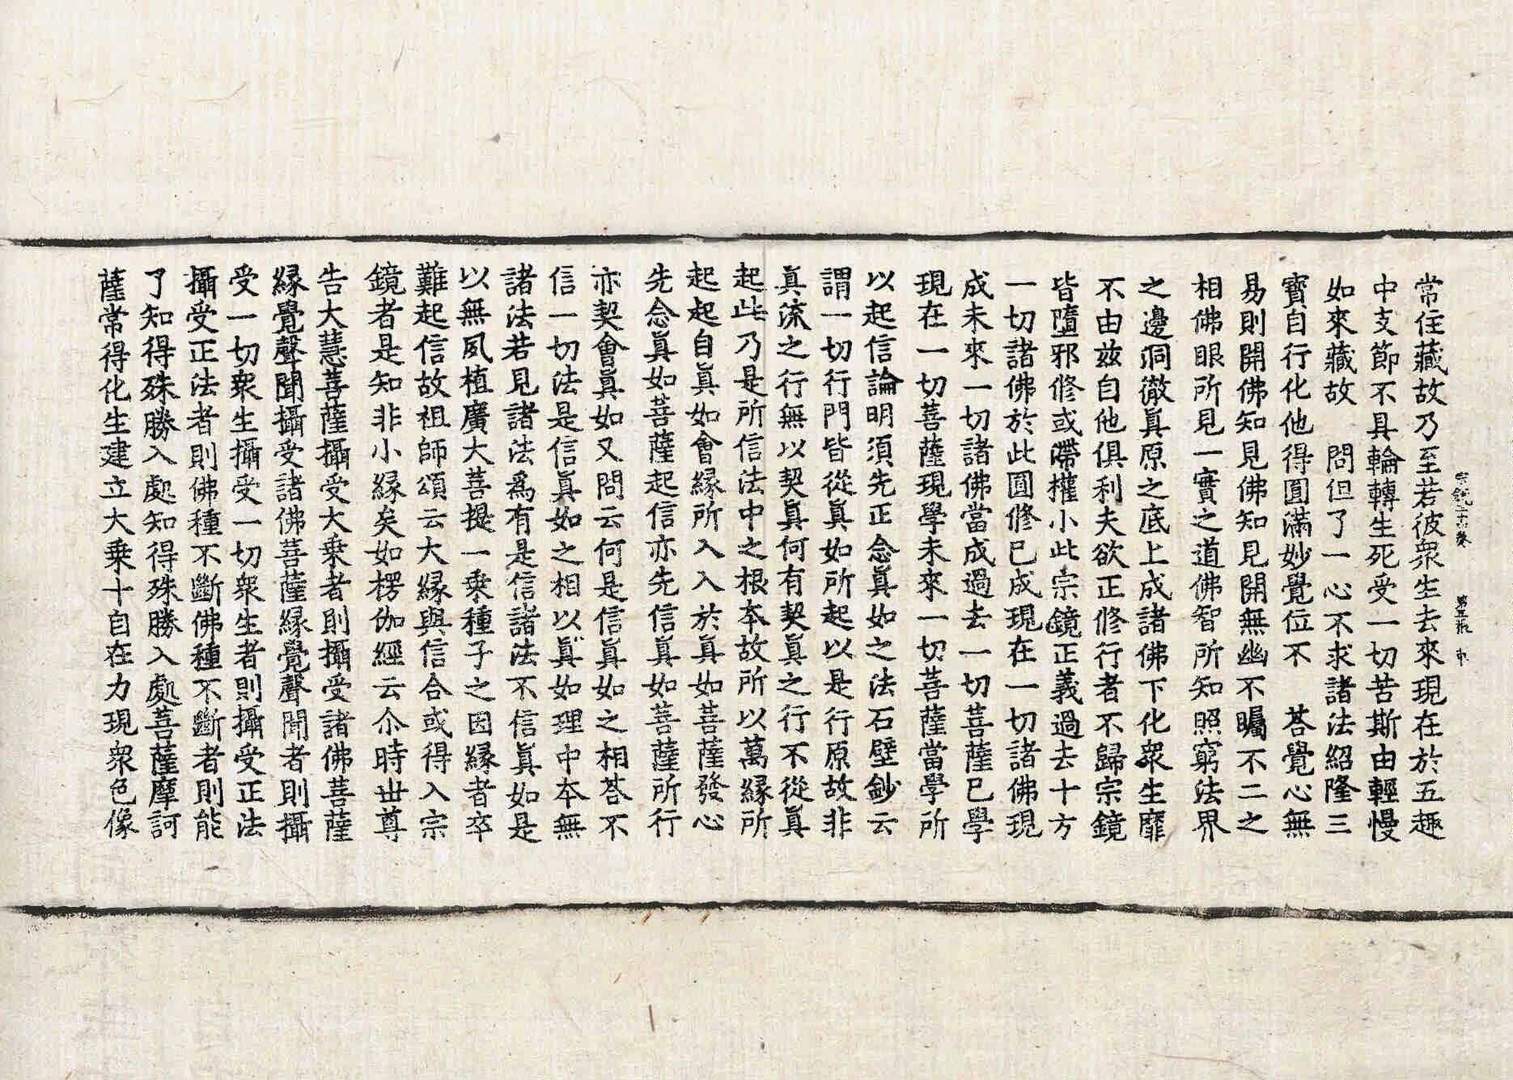 常住藏故乃至若彼衆生去來現在於五趣
中支節不具輪轉生死受一切苦斯由輕慢
如來藏故　問但了一心不求諸法紹隆三
寶自行化他得圓滿妙覺位不　荅覺心無
易則開佛知見佛知見開無幽不矚不二之
相佛眼所見一實之道佛智所知照窮法界
之邊洞徹眞原之底上成諸佛下化衆生靡
不由兹自他俱利夫欲正修行者不歸宗鏡
皆墮邪修或滯權小此宗鏡正義過去十方
一切諸佛於此圓修已成現在一切諸佛現
成未來一切諸佛當成過去一切菩薩已學
現在一切菩薩現學未來一切菩薩當學所
以起信論明須先正念眞如之法石壁鈔云
謂一切行門皆從眞如所起以是行原故非
眞流之行無以契眞何有契眞之行不從眞
起此乃是所信法中之根本故所以萬緣所
起起自眞如會緣所入入於眞如菩薩發心
先念眞如菩薩起信亦先信眞如菩薩所行
亦契會眞如又問云何是信眞如之相荅不
信一切法是信眞如之相以眞如理中本無
諸法若見諸法爲有是信諸法不信眞如是
以無夙植廣大菩提一乘種子之因緣者卒
難起信故祖師頌云大緣與信合或得入宗
鏡者是知非小緣矣如楞伽經云尒時世尊
告大慧菩薩攝受大乘者則攝受諸佛菩薩
緣覺聲聞攝受諸佛菩薩緣覺聲聞者則攝
受一切衆生攝受一切衆生者則攝受正法
攝受正法者則佛種不斷佛種不斷者則能
了知得殊勝入處知得殊勝入處菩薩摩訶
薩常得化生建立大乘十自在力現衆色像